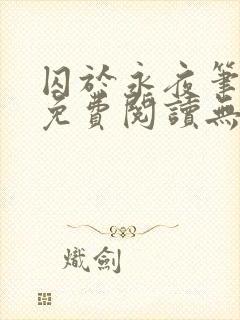 囚於永夜筆
免費閱讀無
熾劍